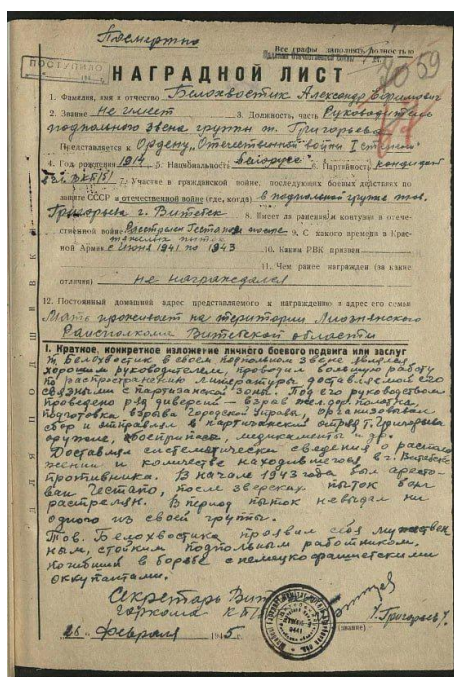 Посмертно
Все графы заполнять полностью
ПОСТУПИЛО
59
НАГРАДНОЙ ЛИСТ
1. Фамилия, имя и отчество Белохвостик Александр Ефимович
2. Звание не имеет 3. Должность, часть Руководитель
подпольного звена группы т. Григорьева
Представляется к Ордену „Отечественной войны I степени"
4. Год рождения 1914 5. Национальность белорусс 6. Партийность кандидат
ВКП(б) 7. Участие в гражданской войне, последующих боевых действиях по
защите СССР и отечественной войне (где, когда) в подпольной группе тов.
Григорьева г. Витебск 8. Имеет ли ранения и контузии в отече-
ственной войне Расстрелян Гестапо после 9. С какого времени в Крас-
тяжелых пыток
ной Армии с Июня 1941 по 1943 10. Каким РВК призван
11. Чем ранее награжден (за какие
отличия) не награждался
12. Постоянный домашний адрес представляемого к награждению и адрес его семьи
Мать проживает на територии Лиознянского
Райсполкома Витебской области
I. Краткое, конкретное изложение личного боевого подвига или заслуг
т. Белохвостик в своем подпольном звене являлся
хорошим руководителем, проводил большую работу
по распространению литературы доставляемой его
связными с партизанской зоны. Под его руководством
проведено ряд диверсий – взрыв жел. дор. полотна,
подготовка взрыва Городской Управы, организовывал
сбор и отправлял в партизанский отряд т. Григорьева
оружие, боеприпасы, медикаменты и др.
Доставлял систематически сведения о располо-
жении и количестве находившегося в г. Витебске
противника. В начале 1943 года был аресто-
ван Гестапо, после зверских пыток был
расстрелян. В период пыток невыдал ни
одного из своей группы.
Тов. Белохвостик проявил себя мужествен-
ным, стойким подпольным работником,
погибший в борьбе с немецко-фашистскими
оккупантами.
Секретарь
горкома КП/б/
/Григорьев/
(звание)
26 февраля 1945 г.